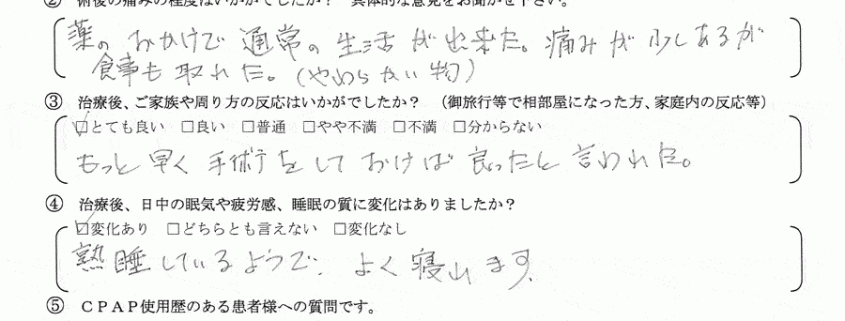 ② 術後の痛みの程度はいかがでしたか？ 具体的な意見をお聞かせ下さい。
薬のおかげで通常の生活が出来た。痛みが少しあるが
食事も取れた。（やわらかい物）
③ 治療後、ご家族や周り方の反応はいかがでしたか？ （御旅行等で相部屋になった方、家庭内の反応等）
☑とても良い □良い □普通 □やや不満 □不満 □分からない
もっと早く手術をしておけば良ったと言われた。
④ 治療後、日中の眠気や疲労感、睡眠の質に変化はありましたか？
☑変化あり □どちらとも言えない □変化なし
熟睡しているようで、よく寝れます。
⑤ ＣＰＡＰ使用歴のある患者様への質問です。